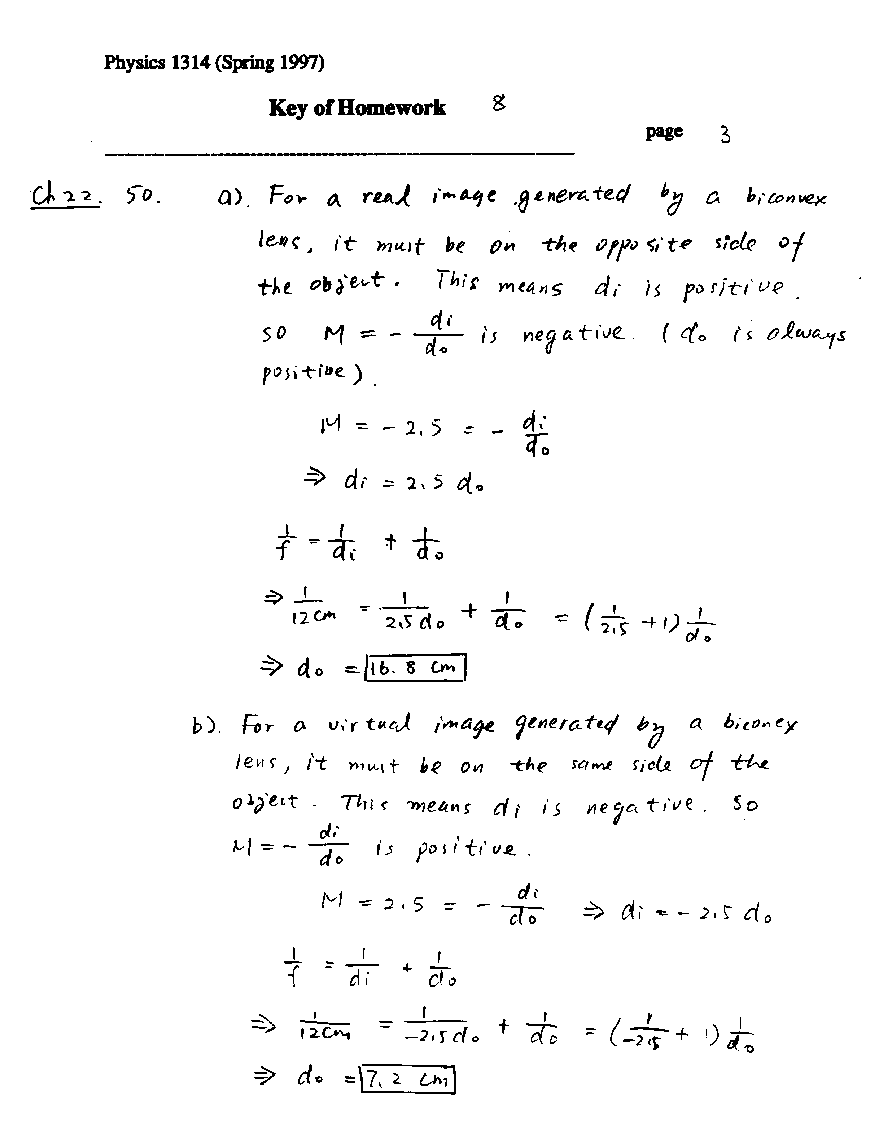 Physics 1314 (Spring 1997)
Key of Homework 8
page 3
Ch 22. 50. a). For a real image generated by a biconvex
lens, it must be on the opposite side of
the object. This means di is positive.
so M = - di/do is negative. (do is always
positive).
M = - 2.5 = - di/do
⇒ di = 2.5 do
1/f = 1/di + 1/do
⇒ 1/12cm = 1/2.5do + 1/do = (1/2.5 + 1) 1/do
⇒ do = 16.8 cm
b). For a virtual image generated by a biconex
lens, it must be on the same side of the
object. This means di is negative. So
M = - di/do is positive.
M = 2.5 = - di/do ⇒ di = - 2.5 do
1/f = 1/di + 1/do
⇒ 1/12cm = 1/-2.5do + 1/do = (1/-2.5 + 1) 1/do
⇒ do = 7.2 cm